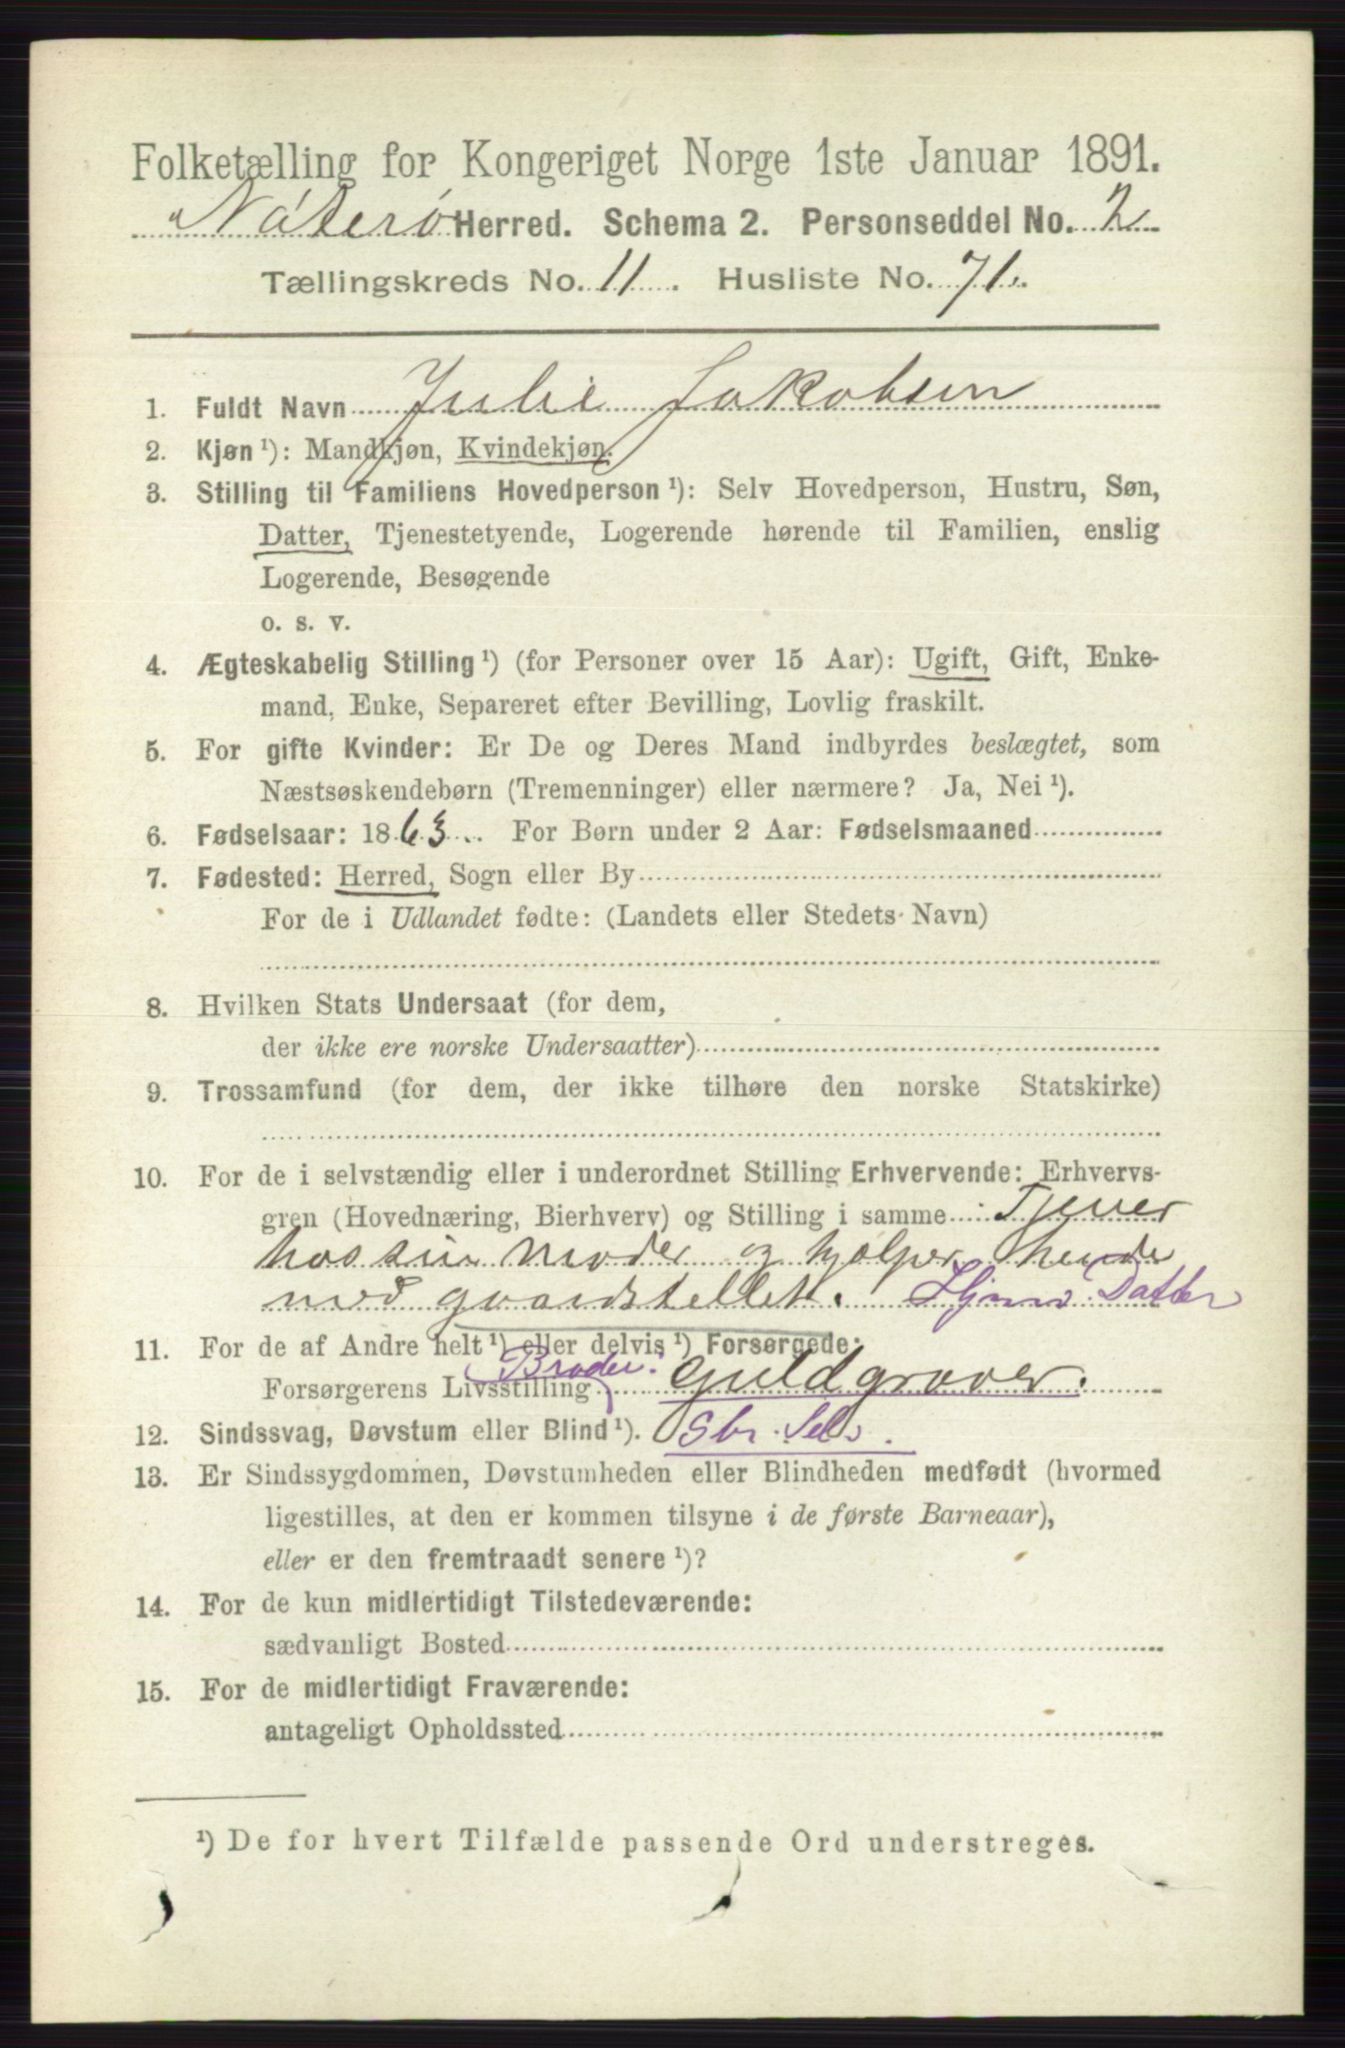 Folketælling for Kongeriget Norge 1ste Januar 1891.
Nøterø Herred. Schema 2. Personseddel No. 2
Tællingskreds No. 11. Husliste No. 71.
1. Fuldt Navn Julie Jakobsen
2. Kjøn ¹): Mandkjøn, Kvindekjøn.
3. Stilling til Familiens Hovedperson ¹): Selv Hovedperson, Hustru, Søn,
Datter, Tjenestetyende, Logerende hørende til Familien, enslig
Logerende, Besøgende
o. s. v.
4. Ægteskabelig Stilling ¹) (for Personer over 15 Aar): Ugift, Gift, Enke-
mand, Enke, Separeret efter Bevilling, Lovlig fraskilt.
5. For gifte Kvinder: Er De og Deres Mand indbyrdes beslægtet, som
Næstsøskendebørn (Tremenninger) eller nærmere? Ja, Nei ¹).
6. Fødselsaar: 1863. For Børn under 2 Aar: Fødselsmaaned
7. Fødested: Herred, Sogn eller By
For de i Udlandet fødte: (Landets eller Stedets Navn)
8. Hvilken Stats Undersaat (for dem,
der ikke ere norske Undersaatter)
9. Trossamfund (for dem, der ikke tilhøre den norske Statskirke)
10. For de i selvstændig eller i underordnet Stilling Erhvervende: Erhvervs-
gren (Hovednæring, Bierhverv) og Stilling i samme Tjener
hos sin Moder og hjelper hende
med gaardstellet. Datter
11. For de af Andre helt ¹) eller delvis ¹) Forsørgede:
Forsørgerens Livsstilling (Broder) Guldgraver.
12. Sindssvag, Døvstum eller Blind ¹).
13. Er Sindssygdommen, Døvstumheden eller Blindheden medfødt (hvormed
ligestilles, at den er kommen tilsyne i de første Barneaar),
eller er den fremtraadt senere ¹)?
14. For de kun midlertidigt Tilstedeværende:
sædvanligt Bosted
15. For de midlertidigt Fraværende:
antageligt Opholdssted
¹) De for hvert Tilfælde passende Ord understreges.